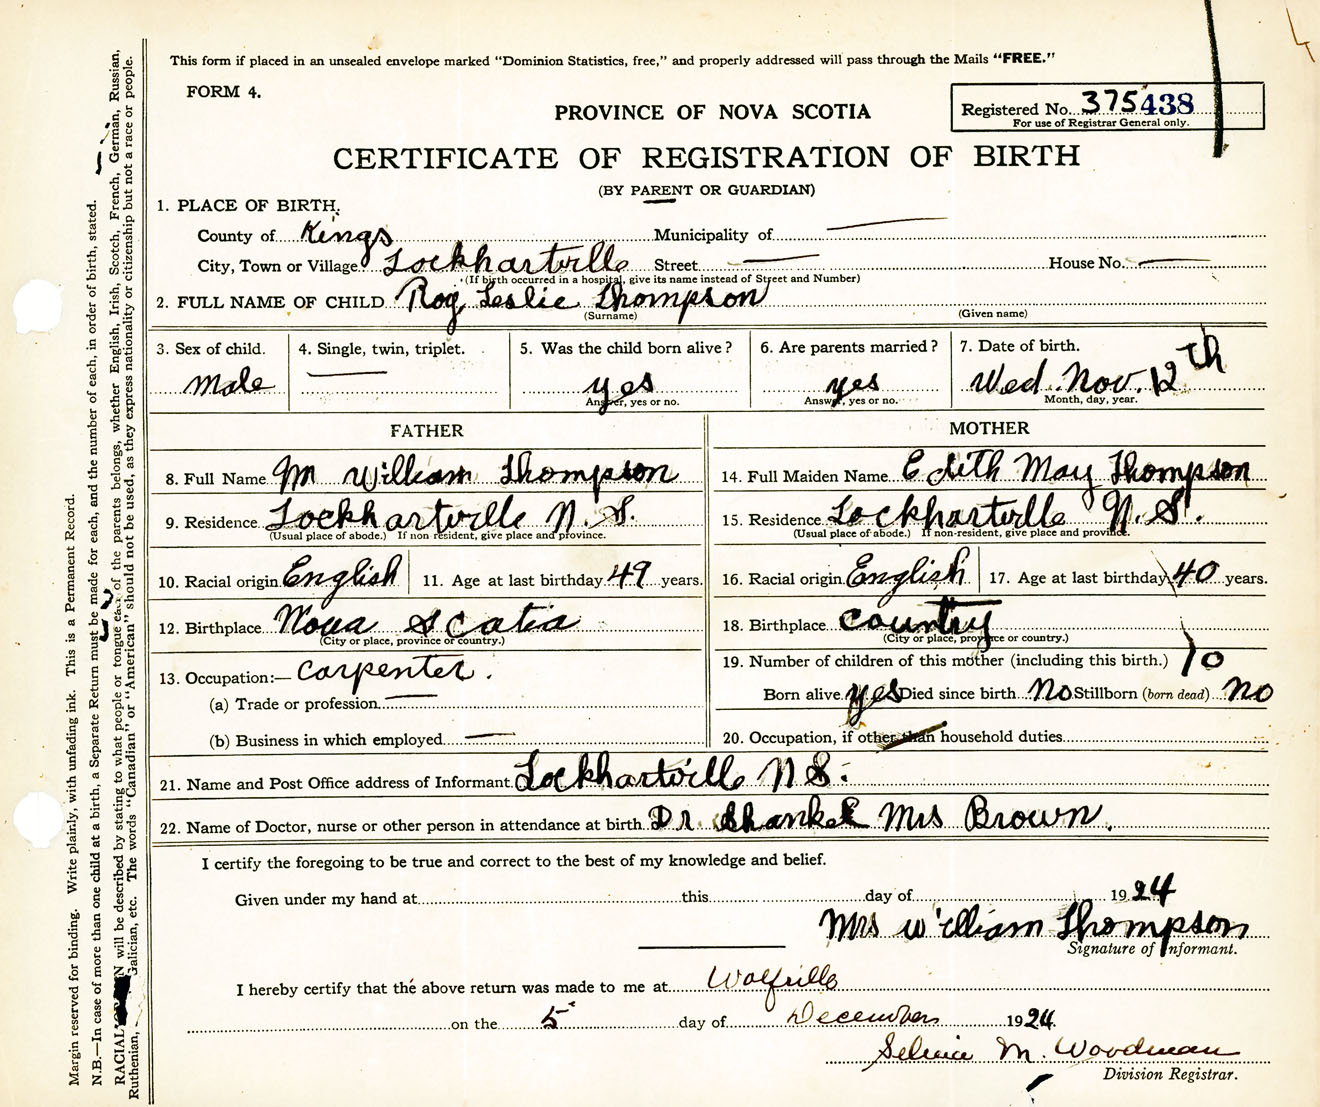 This form if placed in an unsealed envelope marked "Dominion Statistics, free," and properly addressed will pass through the Mails "FREE."
FORM 4.
Registered No. 375438
For use of Registrar General only.
PROVINCE OF NOVA SCOTIA
CERTIFICATE OF REGISTRATION OF BIRTH
(BY PARENT OR GUARDIAN)
1. PLACE OF BIRTH.
County of Kings Municipality of —
City, Town or Village Lockhartville Street — House No. —
(If birth occurred in a hospital, give its name instead of Street and Number)
2. FULL NAME OF CHILD Roy Leslie Thompson
(Surname) (Given name)
3. Sex of child. 4. Single, twin, triplet. 5. Was the child born alive? 6. Are parents married? 7. Date of birth.
Male — yes yes Wed Nov. 12th
Answer, yes or no. Answer, yes or no. Month, day, year.
FATHER
8. Full Name M William Thompson
9. Residence Lockhartville N. S.
(Usual place of abode.) If non resident, give place and province.
10. Racial origin English 11. Age at last birthday 49 years.
12. Birthplace Nova Scatia
(City or place, province or country.)
13. Occupation:— Carpenter.
(a) Trade or profession —
(b) Business in which employed —
MOTHER
14. Full Maiden Name Edith May Thompson
15. Residence Lockhartville N.S.
(Usual place of abode.) If non-resident, give place and province.
16. Racial origin English 17. Age at last birthday 40 years.
18. Birthplace Country
(City or place, province or country.)
19. Number of children of this mother (including this birth.) 10
Born alive yes Died since birth No Stillborn (born dead) no
20. Occupation, if other than household duties
21. Name and Post Office address of Informant Lockhartville N S.
22. Name of Doctor, nurse or other person in attendance at birth Dr Shankel Mrs Brown.
I certify the foregoing to be true and correct to the best of my knowledge and belief.
Given under my hand at this day of 1924
Mrs William Thompson
Signature of Informant.
I hereby certify that the above return was made to me at Wolfville
on the 5 day of December 1924
M. Woodman
Division Registrar.
Margin reserved for binding. Write plainly, with unfading ink. This is a Permanent Record.
N.B.—In case of more than one child at a birth, a Separate Return must be made for each, and the number of each, in order of birth, stated.
RACIAL will be described by stating to what people or tongue each of the parents belongs, whether English, Irish, Scotch, French, German, Russian,
Ruthenian, Galician, etc. The words "Canadian" or "American" should not be used, as they express nationality or citizenship but not a race or people.